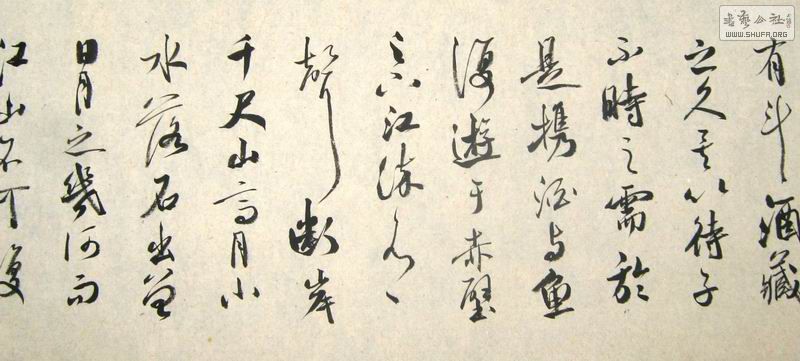 有斗酒藏
之久矣以待子
不時之需於
是携酒与魚
復遊于赤壁
之下江流有
聲斷岸
千尺山高月小
水落石出曾
日月之幾何而
江山不可復
公社
WWW.SHUFA.ORG